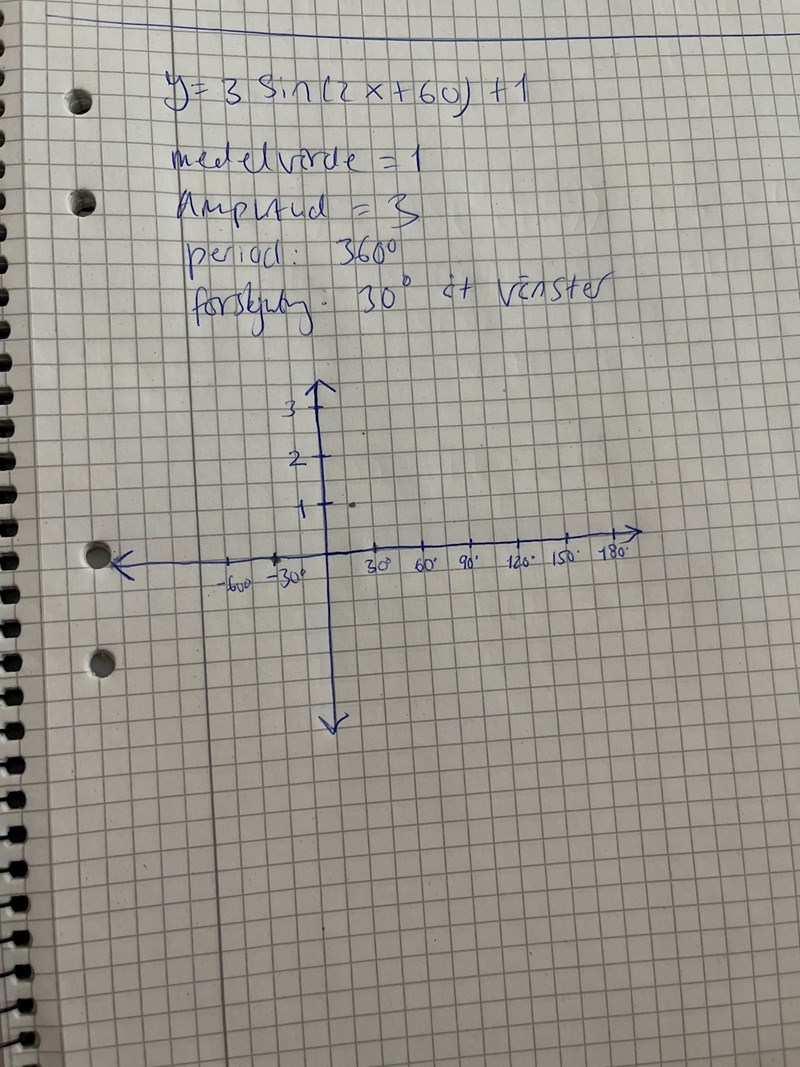 y = 3 sin(2x+60) + 1
medelvärde = 1
Amplitud = 3
period: 360°
förskjutn: 30° åt vänster
3
2
1
-60° -30° 30° 60° 90° 120° 150° 180°